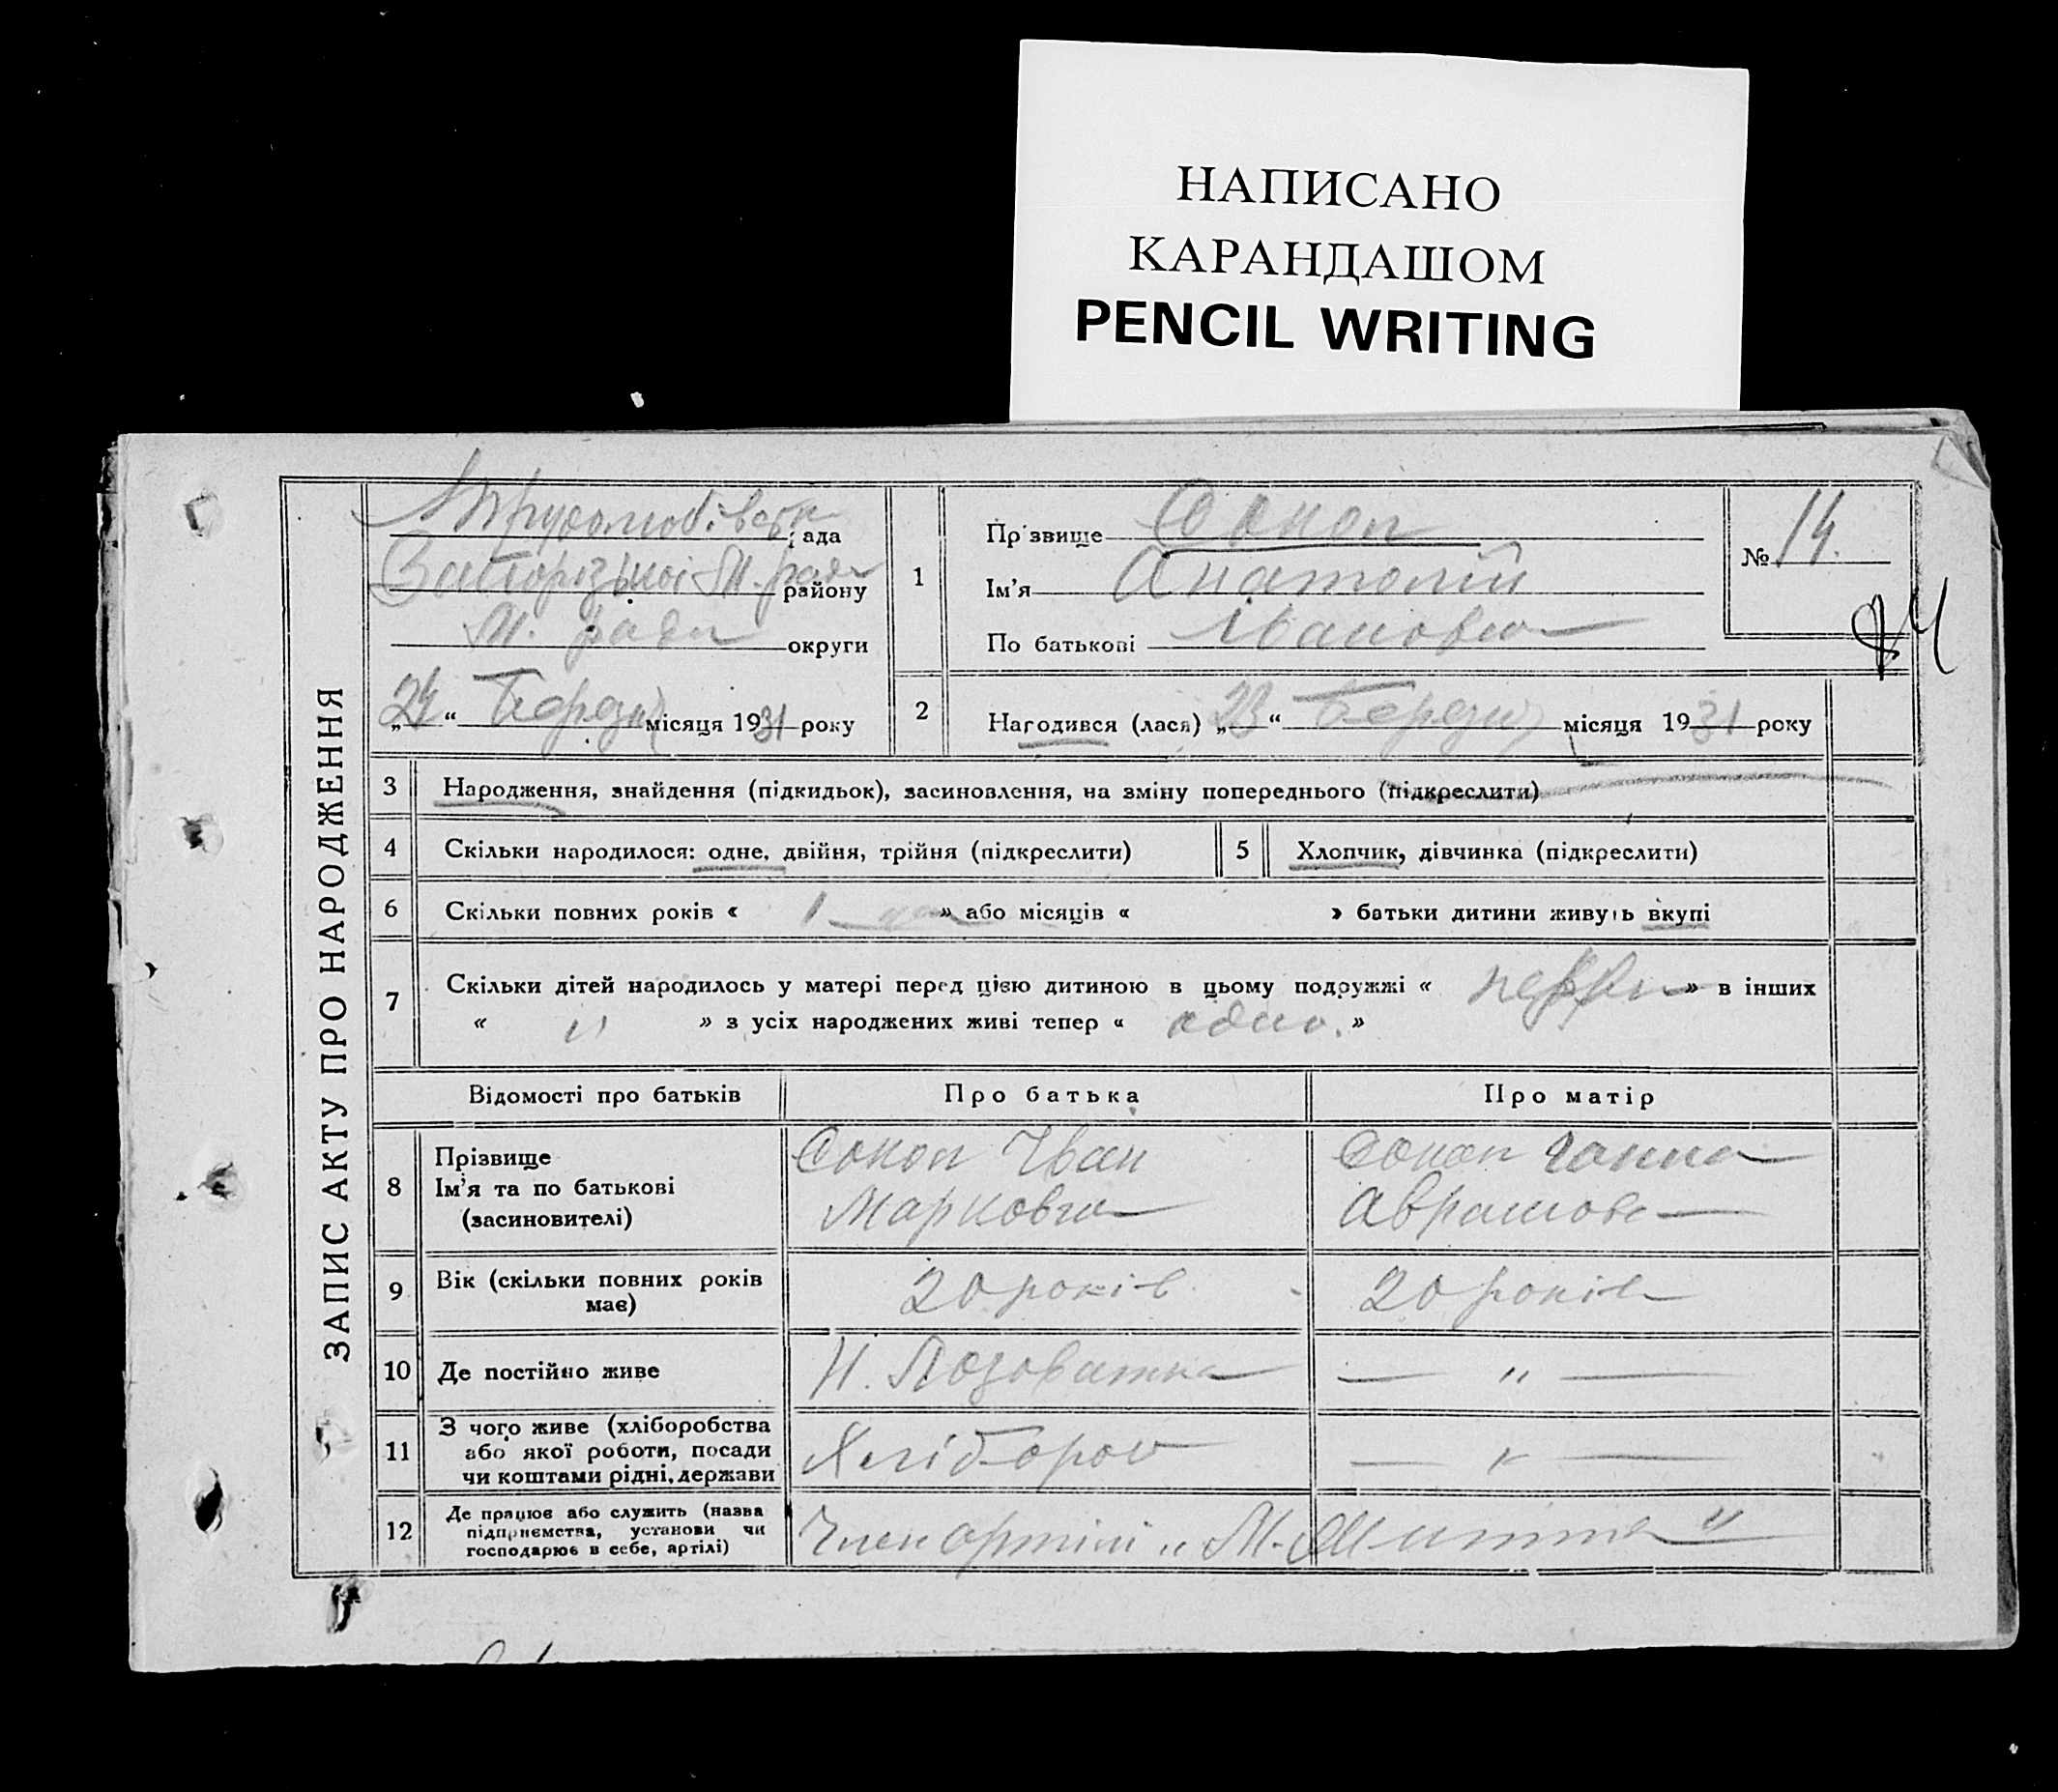 НАПИСАНО
КАРАНДАШОМ
PENCIL WRITING
ЗАПИС АКТУ ПРО НАРОДЖЕННЯ
Трудолюбівська рада
Запорізької М. ради району
М. ради округи
„24“ Березня місяця 1931 року
1
Прізвище Сокол
Ім'я Анатолій
По батькові Іванович
№ 14.
84
2 Народився (лася) „23“ Березня місяця 1931 року
3 Народження, знайдення (підкидьок), засиновлення, на зміну попереднього (підкреслити)
4 Скільки народилося: одне, двійня, трійня (підкреслити)
5 Хлопчик, дівчинка (підкреслити)
6 Скільки повних років « 1 » або місяців « » батьки дитини живуть вкупі
7 Скільки дітей народилось у матері перед цією дитиною в цьому подружжі « » в інших
« " » з усіх народжених живі тепер « одно. »
Відомості про батьків Про батька Про матір
8 Прізвище
Ім'я та по батькові
(засиновителі)
Сокол Іван
Маркович
Сокол Ганна
Аврамовн
9 Вік (скільки повних років
має)
20 років
20 років
10 Де постійно живе
Н. Лозоватка
— " —
11 З чого живе (хліборобства
або якої роботи, посади
чи коштами рідні, держави
Хлібороб
— " —
12 Де працює або служить (назва
підприємства, установи чи
господарює в себе, артілі)
Член артілі „М-